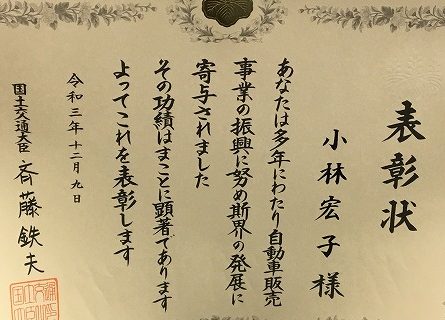 表彰状
小林宏子様
あなたは多年にわたり自動車販売
事業の振興に努め斯界の発展に
寄与されました
その功績はまことに顕著であります
よってこれを表彰します
令和三年十二月九日
国土交通大臣 斉藤鉄夫